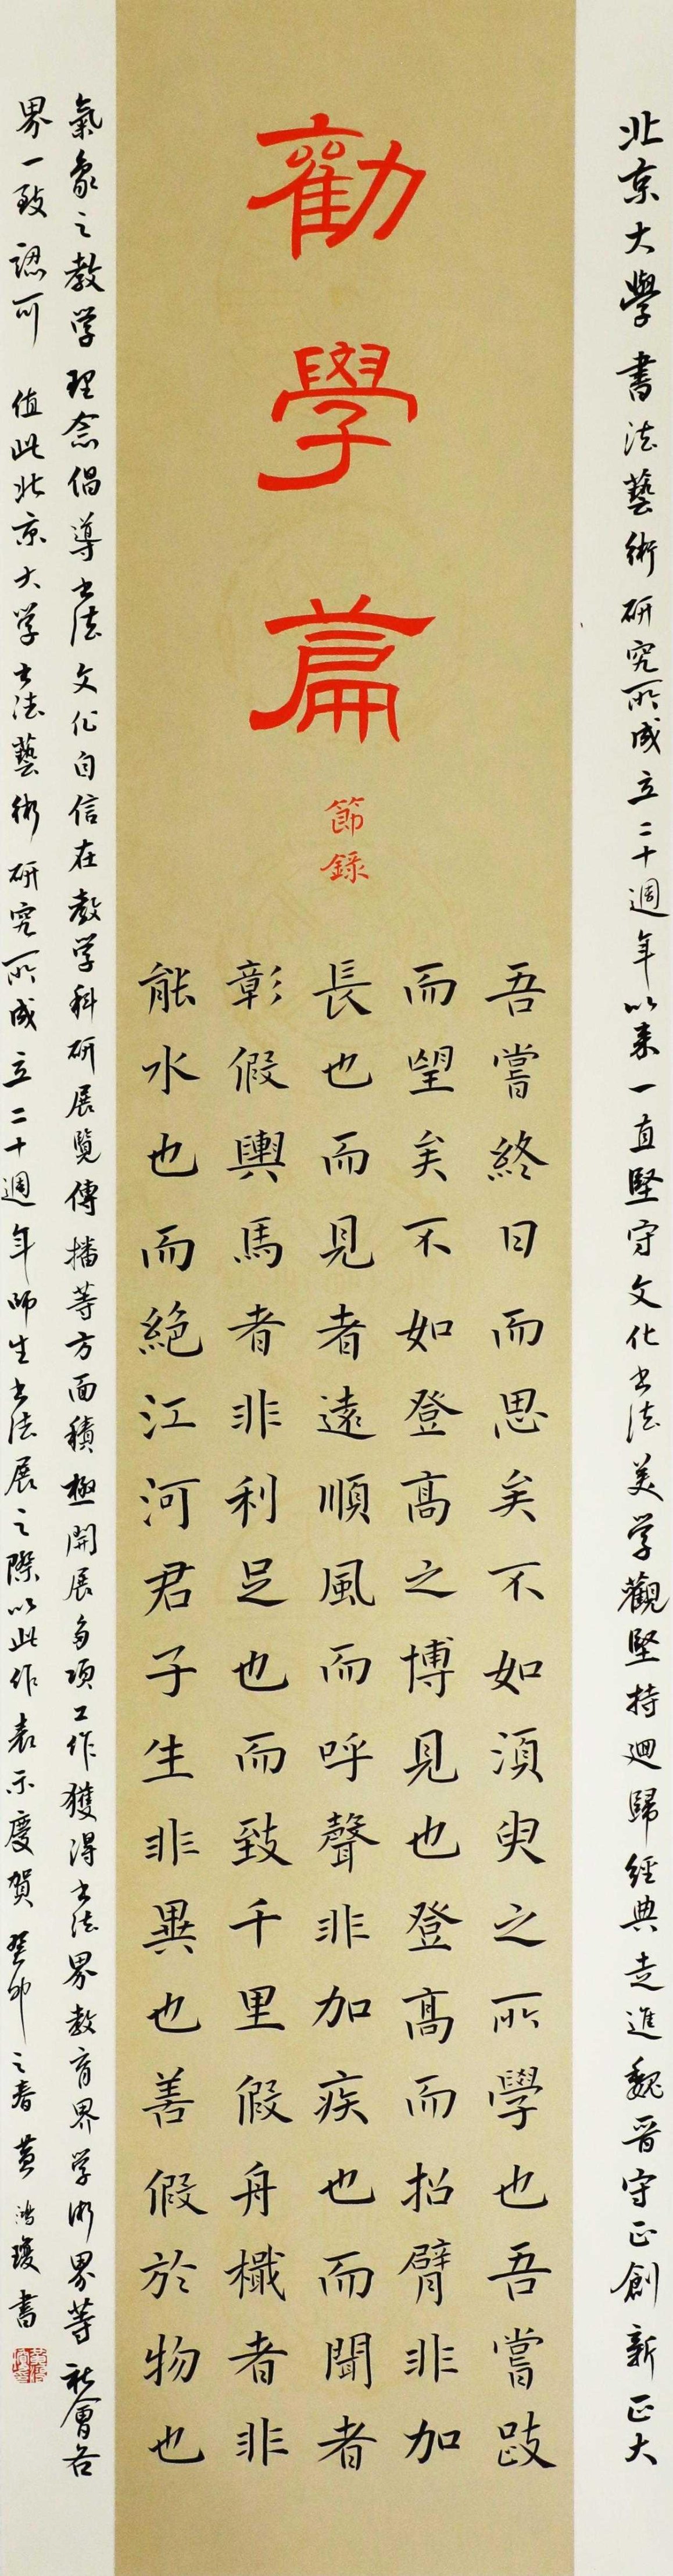 勸學篇
節錄
吾嘗終日而思矣不如須臾之所學也吾嘗跂
而望矣不如登高之博見也登高而招臂非加
長也而見者遠順風而呼聲非加疾也而聞者
彰假輿馬者非利足也而致千里假舟檝者非
能水也而絕江河君子生非異也善假於物也
北京大學書法藝術研究所成立二十週年以来一直堅守文化书法美学觀堅持迴歸經典走進魏晉守正創新正大
氣象之教学理念倡導书法文化自信在教学科研展覽傳播等方面積極開展多項工作獲得书法界教育界学術界等社會各
界一致認可 值此北京大学书法藝術研究所成立二十週年師生书法展之際以此作表示慶賀 癸卯之春 黃鴻瓊書